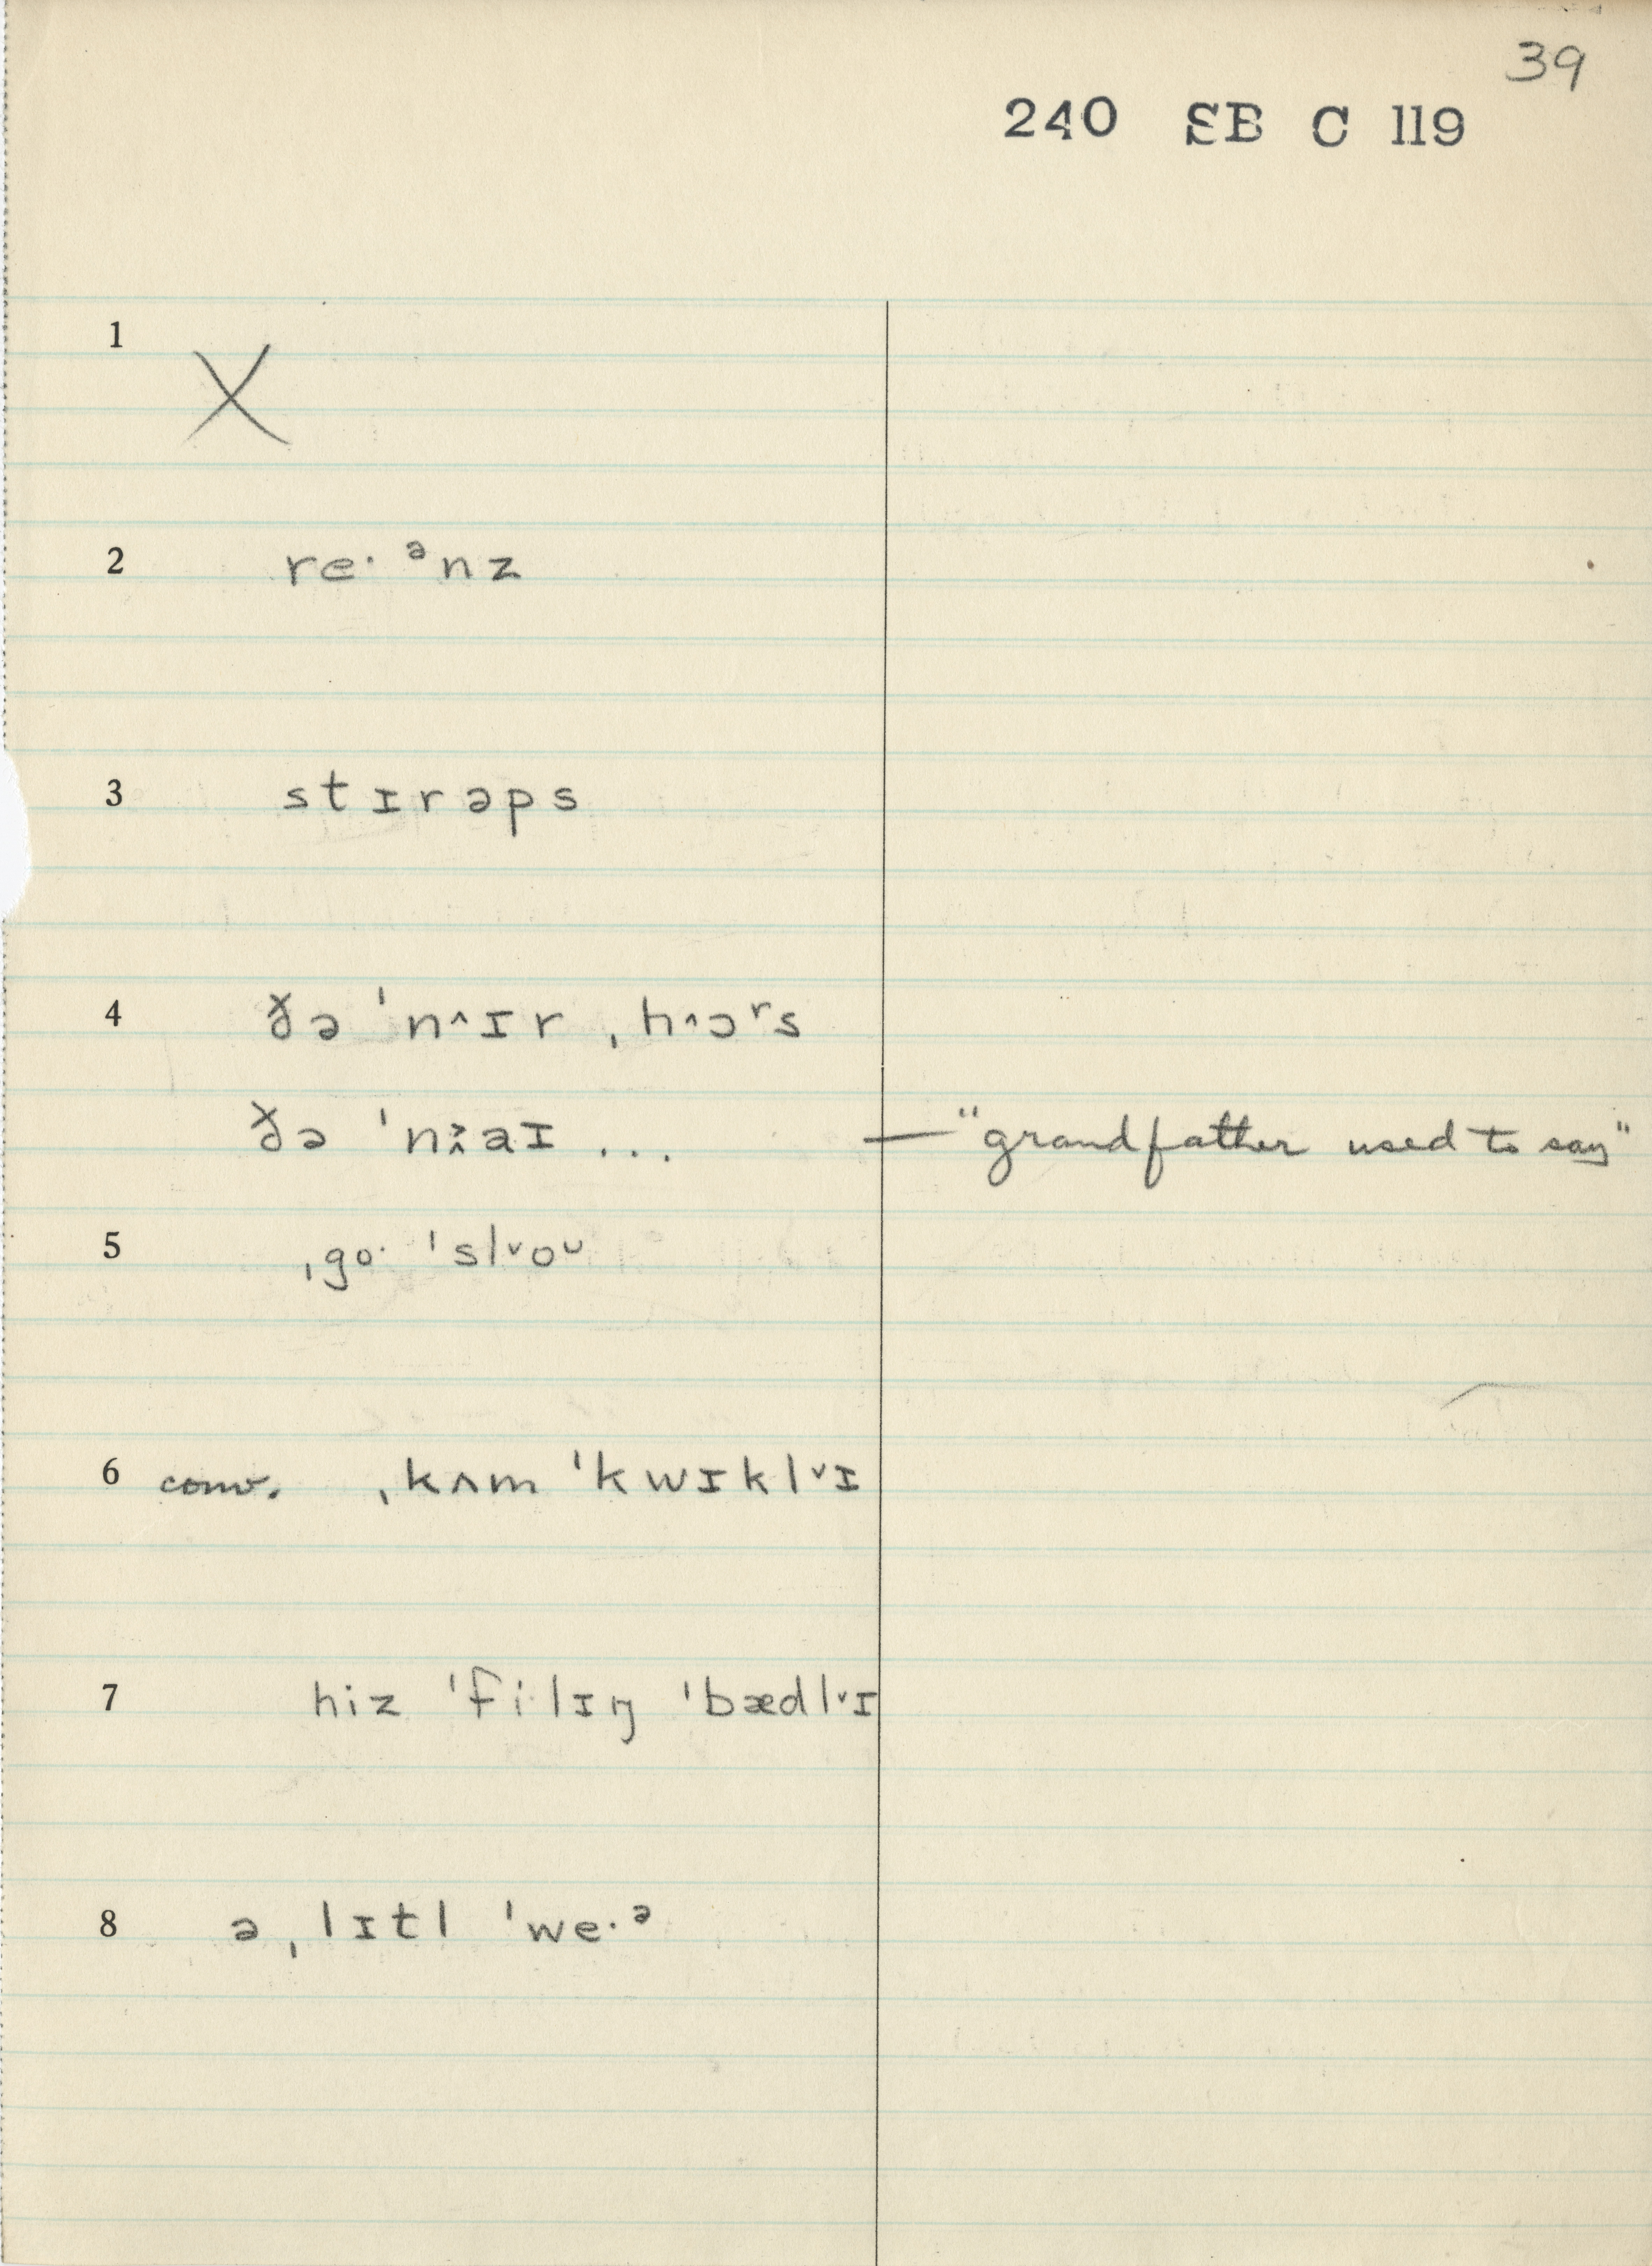 39
240 SB C 119
1
X
2 re· ᵊnz
3 stɪrəps
4 ðə ˈn˄ɪr ˌh˄ɔʳs
ðə ˈn˄˃aɪ ... — "grandfather used to say"
5 ˌgo· ˈsl˅oᴗ
6 conv. ˌkʌm ˈkwɪkl˅ɪ
7 hiz ˈfi·lɪŋ ˈbædl˅ɪ
8 ə ˌlɪtl ˈwe·ᵊ